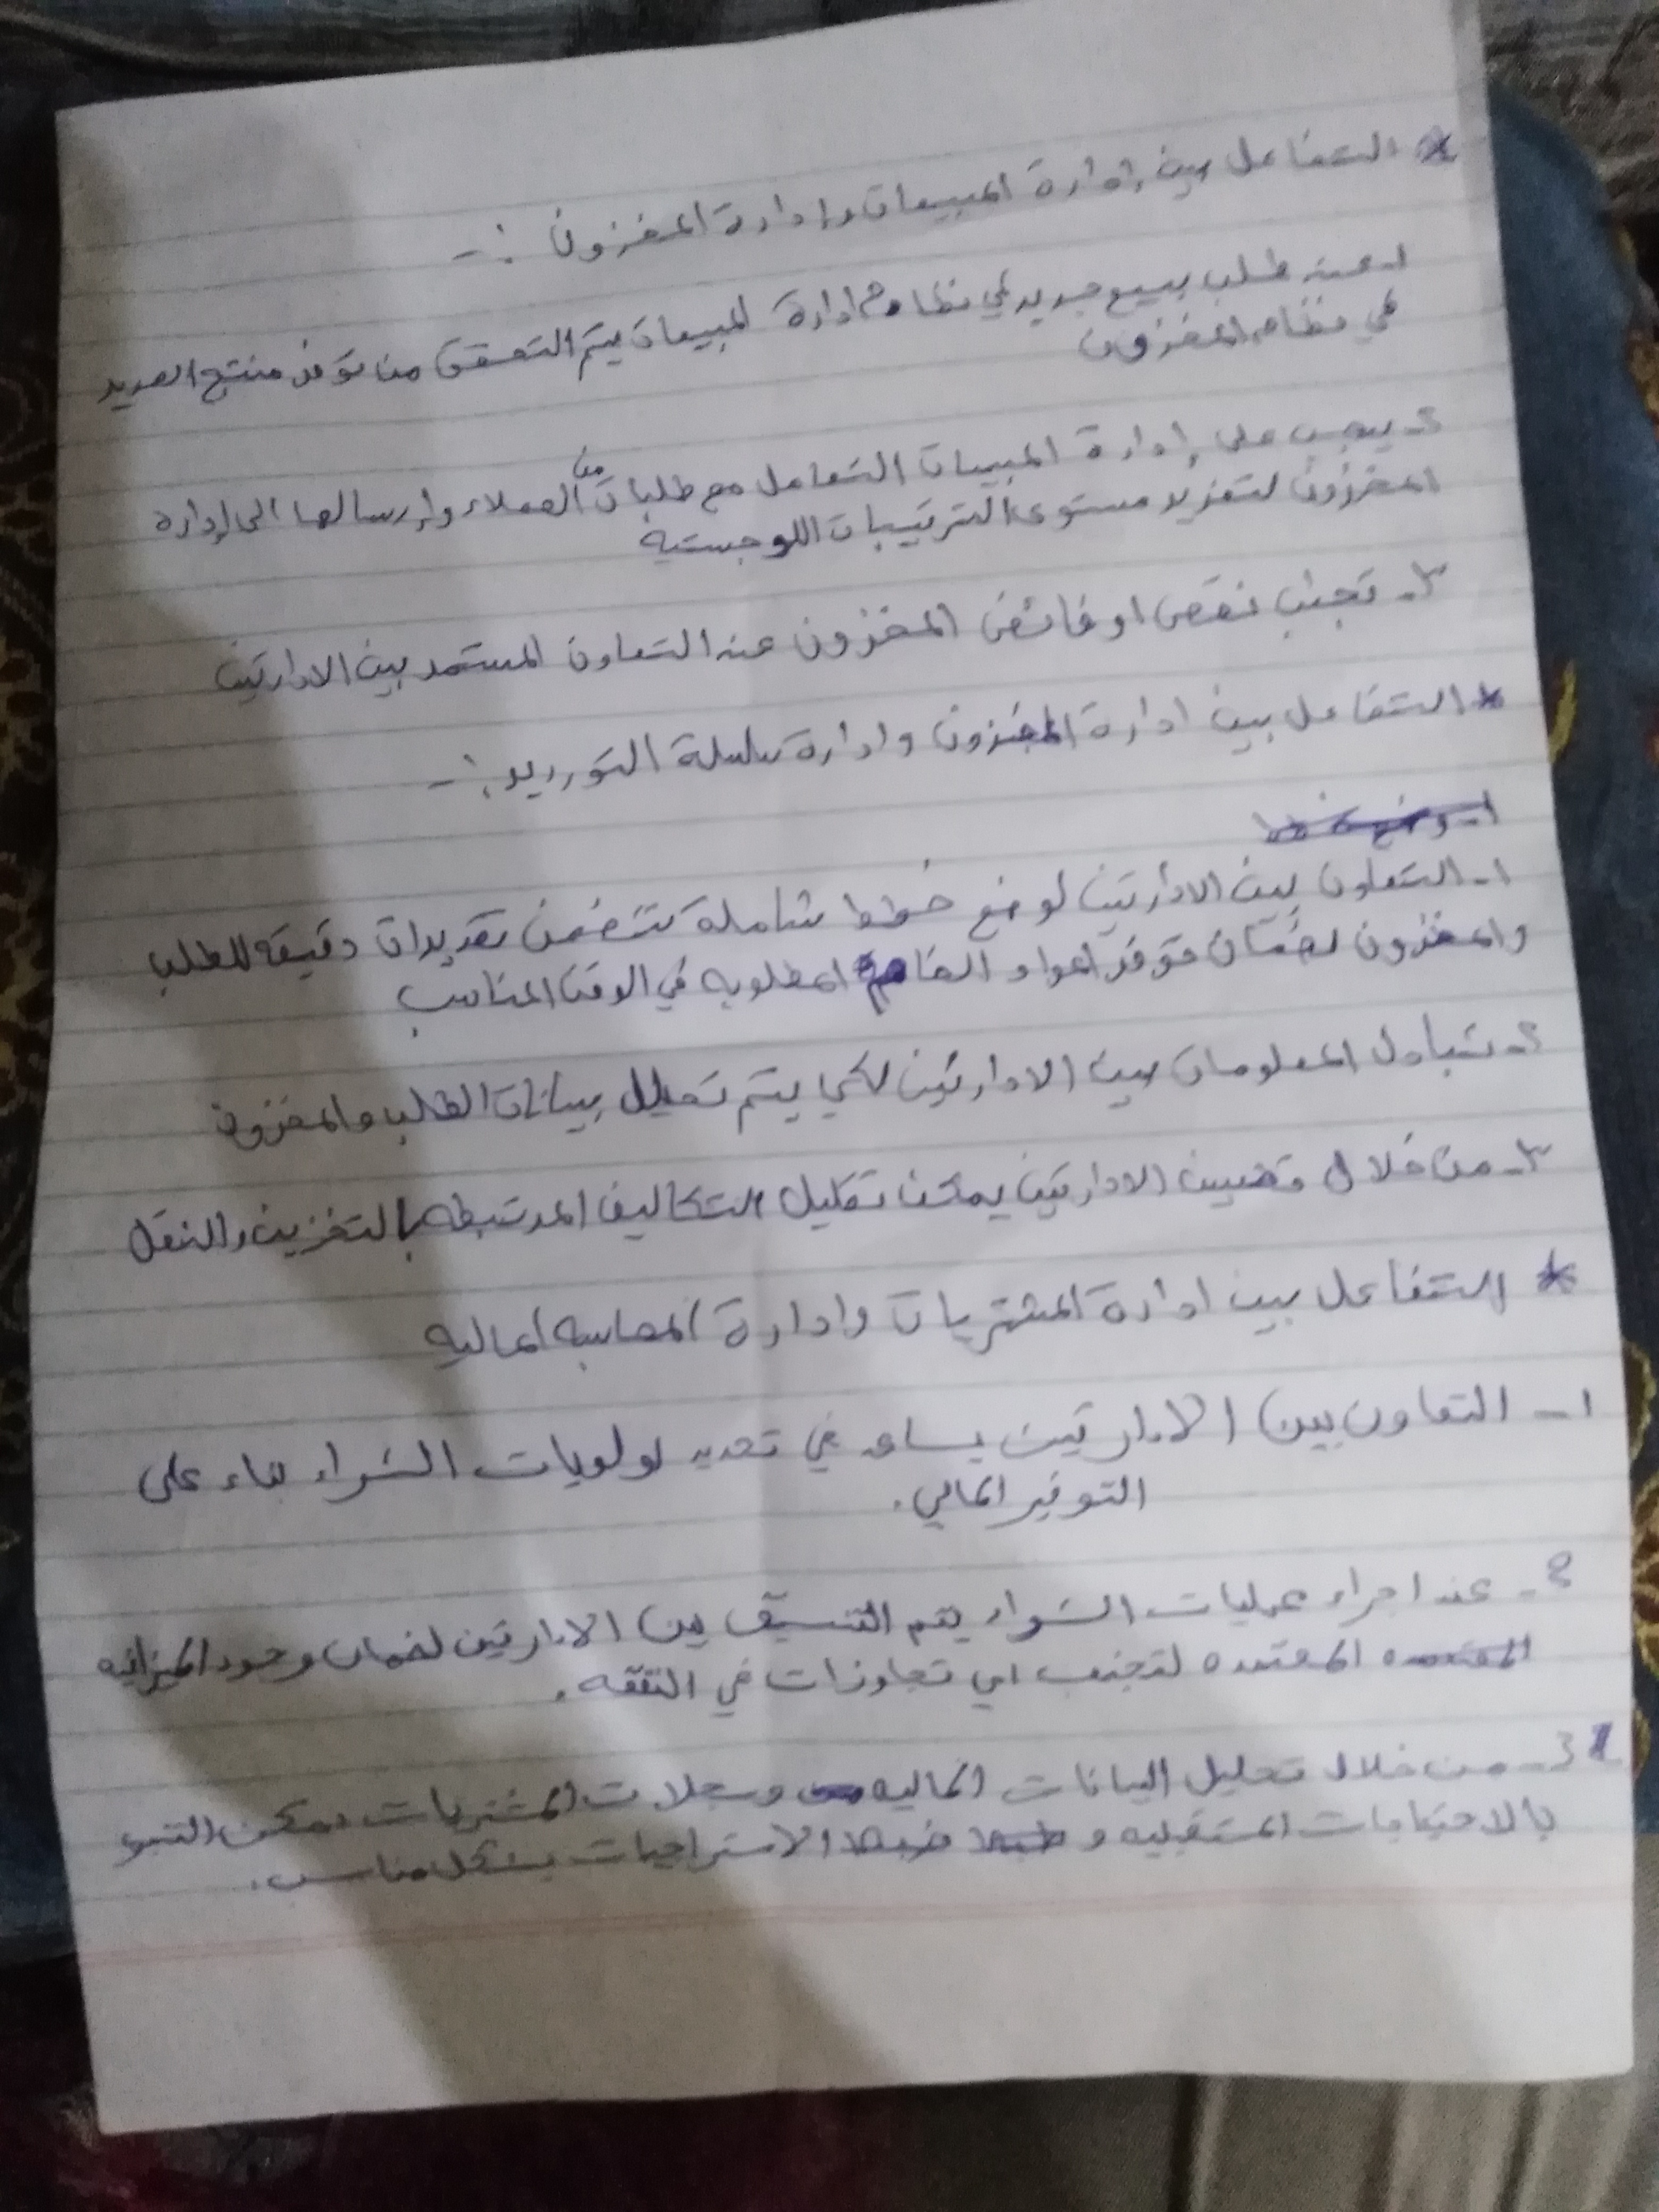 * التفاعل بين إدارة المبيعات وإدارة المخزون :-
١- عند طلب بيع جديد في نظام ادارة المبيعات يتم التحقق من توفر منتج
في نظام المخزون
٢- يجب على إدارة المبيعات التعامل مع طلبات من العملاء وإرسالها الى إدارة
المخزون لتعزيز مستوى الترتيبات اللوجستية
٣- تجنب نقص او فائض المخزون عند التعاون المستمر بين الادارتين
* التفاعل بين ادارة المخزون وادارة سلسلة التوريد :-
١- التعاون بين الادارتين لوضع خطط شاملة تتضمن تقديرات دقيقه للطلب
والمخزون لضمان توفر المواد الخام المطلوبه في الوقت المناسب
٢- تبادل المعلومات بين الادارتين لكي يتم تحليل بيانات الطلب والمخزون
٣- من خلال الادارتين يمكن تقليل التكاليف المرتبطه بالتخزين والنقل
* التفاعل بين ادارة المشتريات وادارة المحاسبه الماليه
١- التعاون بين الادارتين يساعد في تحديد اولويات الشراء بناء على
التوفير المالي.
٢- عند اجراء عمليات الشراء يتم التنسيق بين الادارتين لضمان وجود الميزانيه
المعتمده لتجنب اي تجاوزات في النفقه.
3- من خلال تحليل البيانات الماليه وسجلات المشتريات يمكن التنبو
بالاحتياجات المستقبليه و ضبط الاستراتجيات بشكل مناسب.